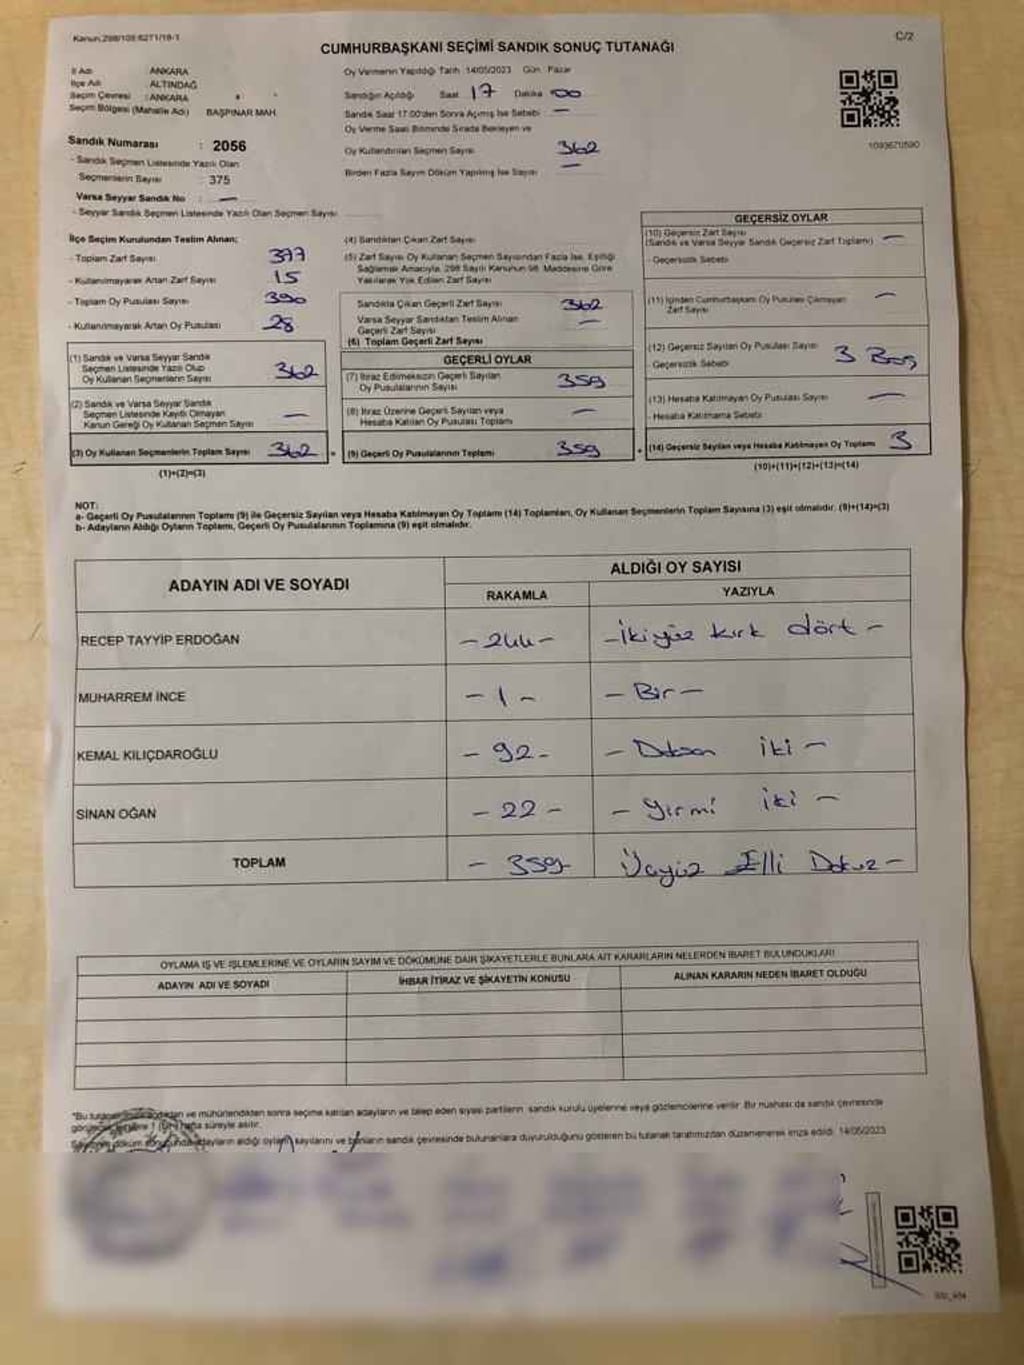 Kanun:298/105:6271/19-1
C/2
CUMHURBAŞKANI SEÇİMİ SANDIK SONUÇ TUTANAĞI
İl Adı : ANKARA
İlçe Adı : ALTINDAĞ
Seçim Çevresi : ANKARA
Seçim Bölgesi (Mahalle Adı) BAŞPINAR MAH.
Sandık Numarası : 2056
- Sandık Seçmen Listesinde Yazılı Olan
Seçmenlerin Sayısı : 375
Varsa Seyyar Sandık No : —
- Seyyar Sandık Seçmen Listesinde Yazılı Olan Seçmen Sayısı
Oy Vermenin Yapıldığı Tarih 14/05/2023 Gün Pazar
Sandığın Açıldığı Saat 17 Dakika 00
Sandık Saat 17:00'den Sonra Açımış İse Sebebi —
Oy Verme Saati Bitiminde Sırada Bekleyen ve
Oy Kullandırılan Seçmen Sayısı 362
Birden Fazla Sayım Döküm Yapılmış İse Sayısı —
İlçe Seçim Kurulundan Teslim Alınan;
- Toplam Zarf Sayısı 377
- Kullanılmayarak Artan Zarf Sayısı 15
- Toplam Oy Pusulası Sayısı 390
- Kullanılmayarak Artan Oy Pusulası 28
(1) Sandık ve Varsa Seyyar Sandık
Seçmen Listesinde Yazılı Olup
Oy Kullanan Seçmenlerin Sayısı 362
(2) Sandık ve Varsa Seyyar Sandık
Seçmen Listesinde Kayıtlı Olmayan
Kanun Gereği Oy Kullanan Seçmen Sayısı —
(3) Oy Kullanan Seçmenlerin Toplam Sayısı 362
(1)+(2)=(3)
(4) Sandıktan Çıkan Zarf Sayısı
(5) Zarf Sayısı Oy Kullanan Seçmen Sayısından Fazla İse, Eşitliği
Sağlamak Amacıyla, 298 Sayılı Kanunun 98. Maddesine Göre
Yakılarak Yok Edilen Zarf Sayısı
Sandıkta Çıkan Geçerli Zarf Sayısı 362
Varsa Seyyar Sandıktan Teslim Alınan
Geçerli Zarf Sayısı —
(6) Toplam Geçerli Zarf Sayısı
GEÇERLİ OYLAR
(7) İtiraz Edilmeksizin Geçerli Sayılan
Oy Pusulalarının Sayısı 359
(8) İtiraz Üzerine Geçerli Sayılan veya
Hesaba Katılan Oy Pusulaları Toplamı —
(9) Geçerli Oy Pusulalarının Toplamı 359
GEÇERSİZ OYLAR
(10) Geçersiz Zarf Sayısı
(Sandık ve Varsa Seyyar Sandık Geçersiz Zarf Toplamı) —
- Geçersizlik Sebebi
(11) İçinden Cumhurbaşkanı Oy Pusulası Çıkmayan
Zarf Sayısı —
(12) Geçersiz Sayılan Oy Pusulası Sayısı 3 Boş
Geçersizlik Sebebi
(13) Hesaba Katılmayan Oy Pusulası Sayısı —
- Hesaba Katılmama Sebebi
(14) Geçersiz Sayılan veya Hesaba Katılmayan Oy Toplamı 3
(10)+(11)+(12)+(13)=(14)
NOT:
a- Geçerli Oy Pusulalarının Toplamı (9) ile Geçersiz Sayılan veya Hesaba Katılmayan Oy Toplamı (14) Toplamları, Oy Kullanan Seçmenlerin Toplam Sayısına (3) eşit olmalıdır. (9)+(14)=(3)
b- Adayların Aldığı Oyların Toplamı, Geçerli Oy Pusulalarının Toplamına (9) eşit olmalıdır.
ADAYIN ADI VE SOYADI
ALDIĞI OY SAYISI
RAKAMLA YAZIYLA
RECEP TAYYİP ERDOĞAN -244- -İkiyüz kırk dört-
MUHARREM İNCE -1- -Bir-
KEMAL KILIÇDAROĞLU -92- -Doksan iki-
SİNAN OĞAN -22- -Yirmi iki-
TOPLAM -359- Üçyüz Elli Dokuz-
OYLAMA İŞ VE İŞLEMLERİNE VE OYLARIN SAYIM VE DÖKÜMÜNE DAİR ŞİKAYETLERLE BUNLARA AİT KARARLARIN NELERDEN İBARET BULUNDUKLARI
ADAYIN ADI VE SOYADI İHBAR İTİRAZ VE ŞİKAYETİN KONUSU ALINAN KARARIN NEDEN İBARET OLDUĞU
ve mühürlendikten sonra seçime katılan adayların ve talep eden siyasi partilerin sandık kurulu üyelerine veya gözlemcilerine verilir. Bir nüshası da sandık çevresinde
hafta süreyle asılır.
adayların aldığı oyların sayılarını ve bunların sandık çevresinde bulunanlara duyurulduğunu gösteren bu tutanak tarafımızdan düzenlenerek imza edildi. 14/05/2023